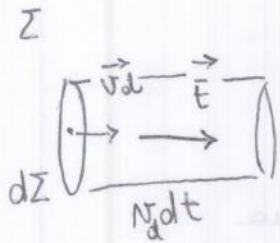 Σ
v⃗d t⃗
dΣ
v_d dt